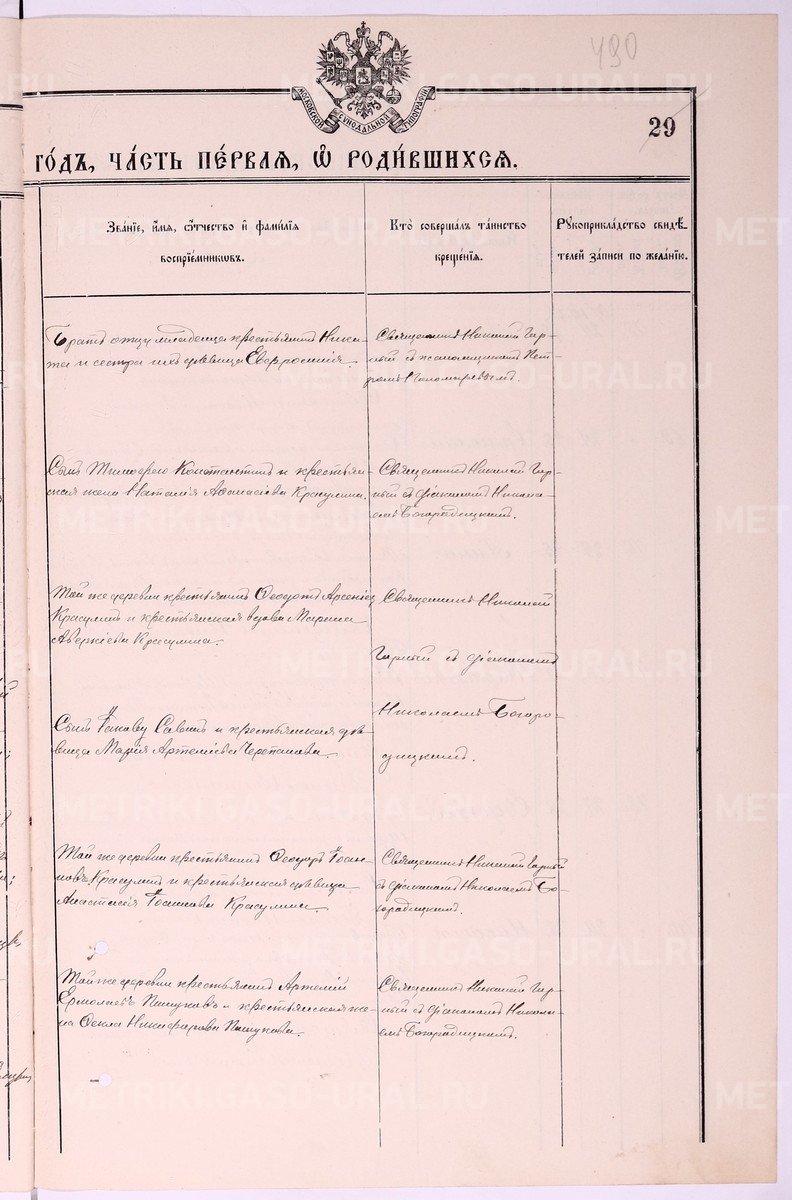 490
МОСКОВСКОЙ СѴНОДАЛЬНОЙ ТИПОГРАФІИ
29
го́дъ, ча́сть пе́рвая, ѽ роди́вшихся.
Зва́ніе, и҆́мя, ѻ҆́тчество и҆ фами́лія
воспріе́мникѡвъ.
Кто̀ соверша́лъ та́инство
креще́нія.
Рꙋкоприкла́дство свидѣ́-
телей за́писи по жела́нію.
Братъ отца младенца крестьянинъ Ники-
та и сестра ихъ дѣвица Евфросинія.
Священникъ Николай Гир-
ный съ псаломщикомъ Пет-
ромъ
Сынъ Тимофею Константинъ и крестьян-
ская жена Наталія Аѳанасіева Красулина.
Священникъ Николай Гир-
ный съ діакономъ Никола-
емъ Богородицкимъ.
Той же деревни крестьянинъ Ѳеодотъ Арсеніев
Красулинъ и крестьянская вдова Марина
Аверкіева Красулина.
Священникъ Николай
Гирный съ діакономъ
Николаемъ Богоро-
дицкимъ.
Сынъ Іакову Савинъ и крестьянская дѣ-
вица Марія Артеміева Черепанова.
Той же деревни крестьянинъ Ѳеодоръ Іоан-
новъ Красулинъ и крестьянская дѣвица
Анастасія Іоаннова Красулина.
Священникъ Николай Гирный
съ діакономъ Николаемъ Бо-
городицкимъ.
Той же деревни крестьянинъ Артемій
Ермолаевъ Пашуковъ и крестьянская же-
на Ѳекла Никифорова Пашукова.
Священникъ Николай Гир-
ный съ діакономъ Никола-
емъ Богородицкимъ.
METRIKI.GASO-URAL.RU